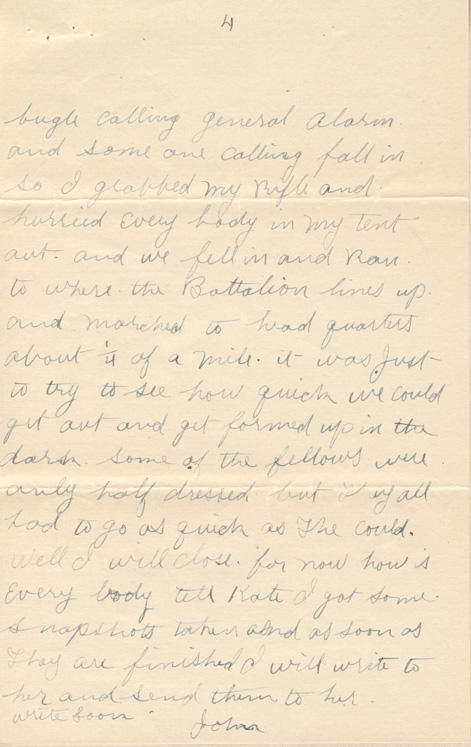 4
bugle calling general alarm.
and some one calling fall in
so I grabbed my Rifle and.
hurried Every body in my tent
out. and we fell in and Ran.
to where the Battalion lines up.
and marched to head quarters
about ¼ of a mile. it was Just
to try to see how quick we could
get out and get formed up in the
dark. some of the fellows were.
only half dressed but They all
had to go as quick as The could.
Well I will close. for now how is
Every body tell Kate I got some.
snapshots taken and as soon as
They are finished I will write to
her and send them to her.
write soon.
John